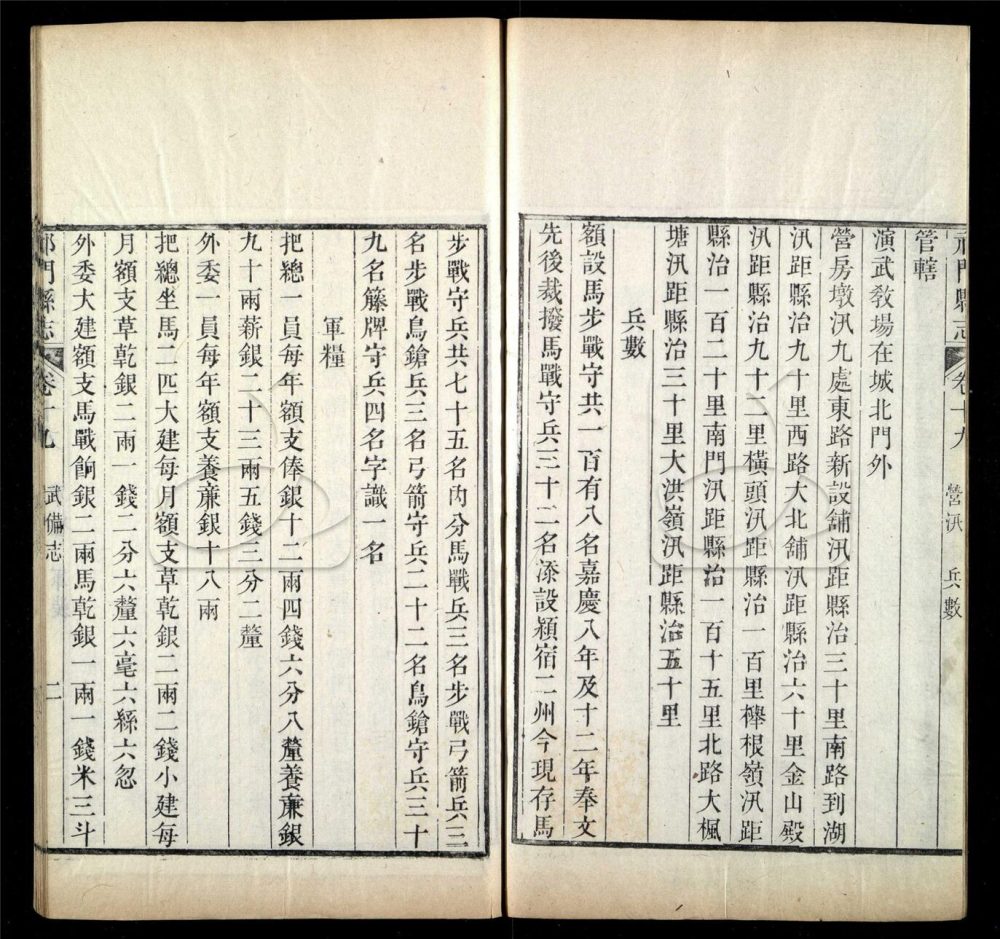 祁門縣志 卷十九 營汛 兵數
管轄
演武教場在城北門外
營房墩汛九處東路新設舖汛距縣治三十里南路到湖
汛距縣治九十里西路大北舖汛距縣治六十里金山殿
汛距縣治九十二里橫頭汛距縣治一百里櫸根嶺汛距
縣治一百二十里南門汛距縣治一百十五里北路大楓
塘汛距縣治三十里大洪嶺汛距縣治五十里
兵數
額設馬步戰守共一百有八名嘉慶八年及十二年奉文
先後裁撥馬戰守兵三十二名添設潁宿二州今現存馬
步戰守兵共七十五名內分馬戰兵三名步戰弓箭兵三
名步戰鳥鎗兵三名弓箭守兵二十二名鳥鎗守兵三十
九名籐牌守兵四名字識一名
軍糧
把總一員每年額支俸銀十二兩四錢六分八釐養亷銀
九十兩薪銀二十三兩五錢三分二釐
外委一員每年額支養亷銀十八兩
把總坐馬二匹大建每月額支草乾銀二兩二錢小建每
月額支草乾銀二兩一錢二分六釐六毫六絲六忽
外委大建額支馬戰餉銀二兩馬乾銀一兩一錢米三斗
祁門縣志 卷十九 武備志 二